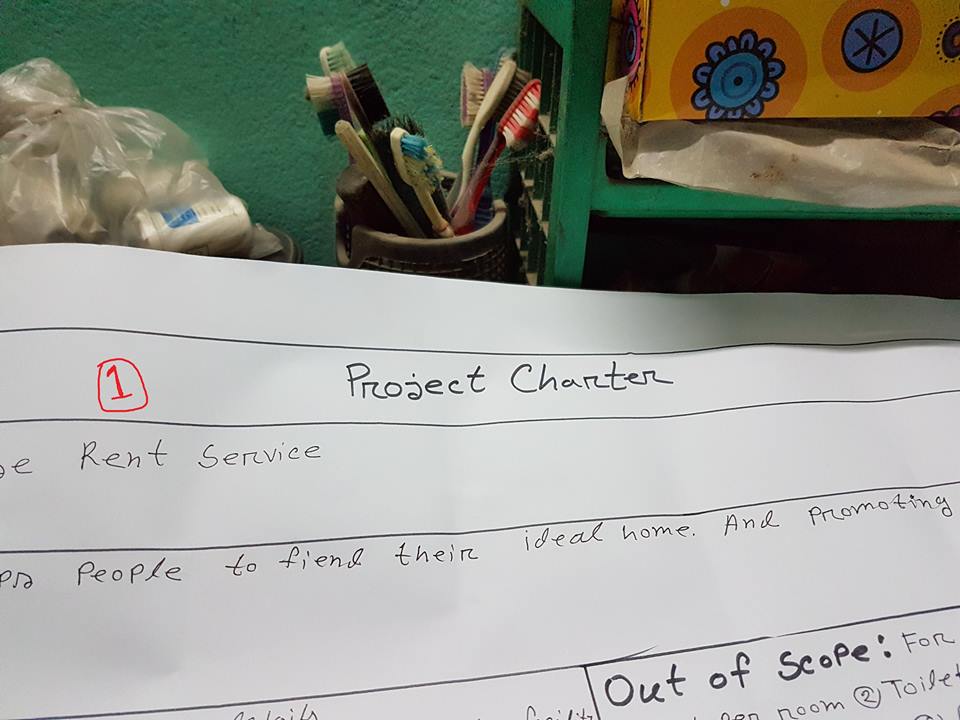 1 Project Charter
se Rent Service
ps People to fiend their ideal home. And Promoting
Out of Scope: For
room ② Toilet
details